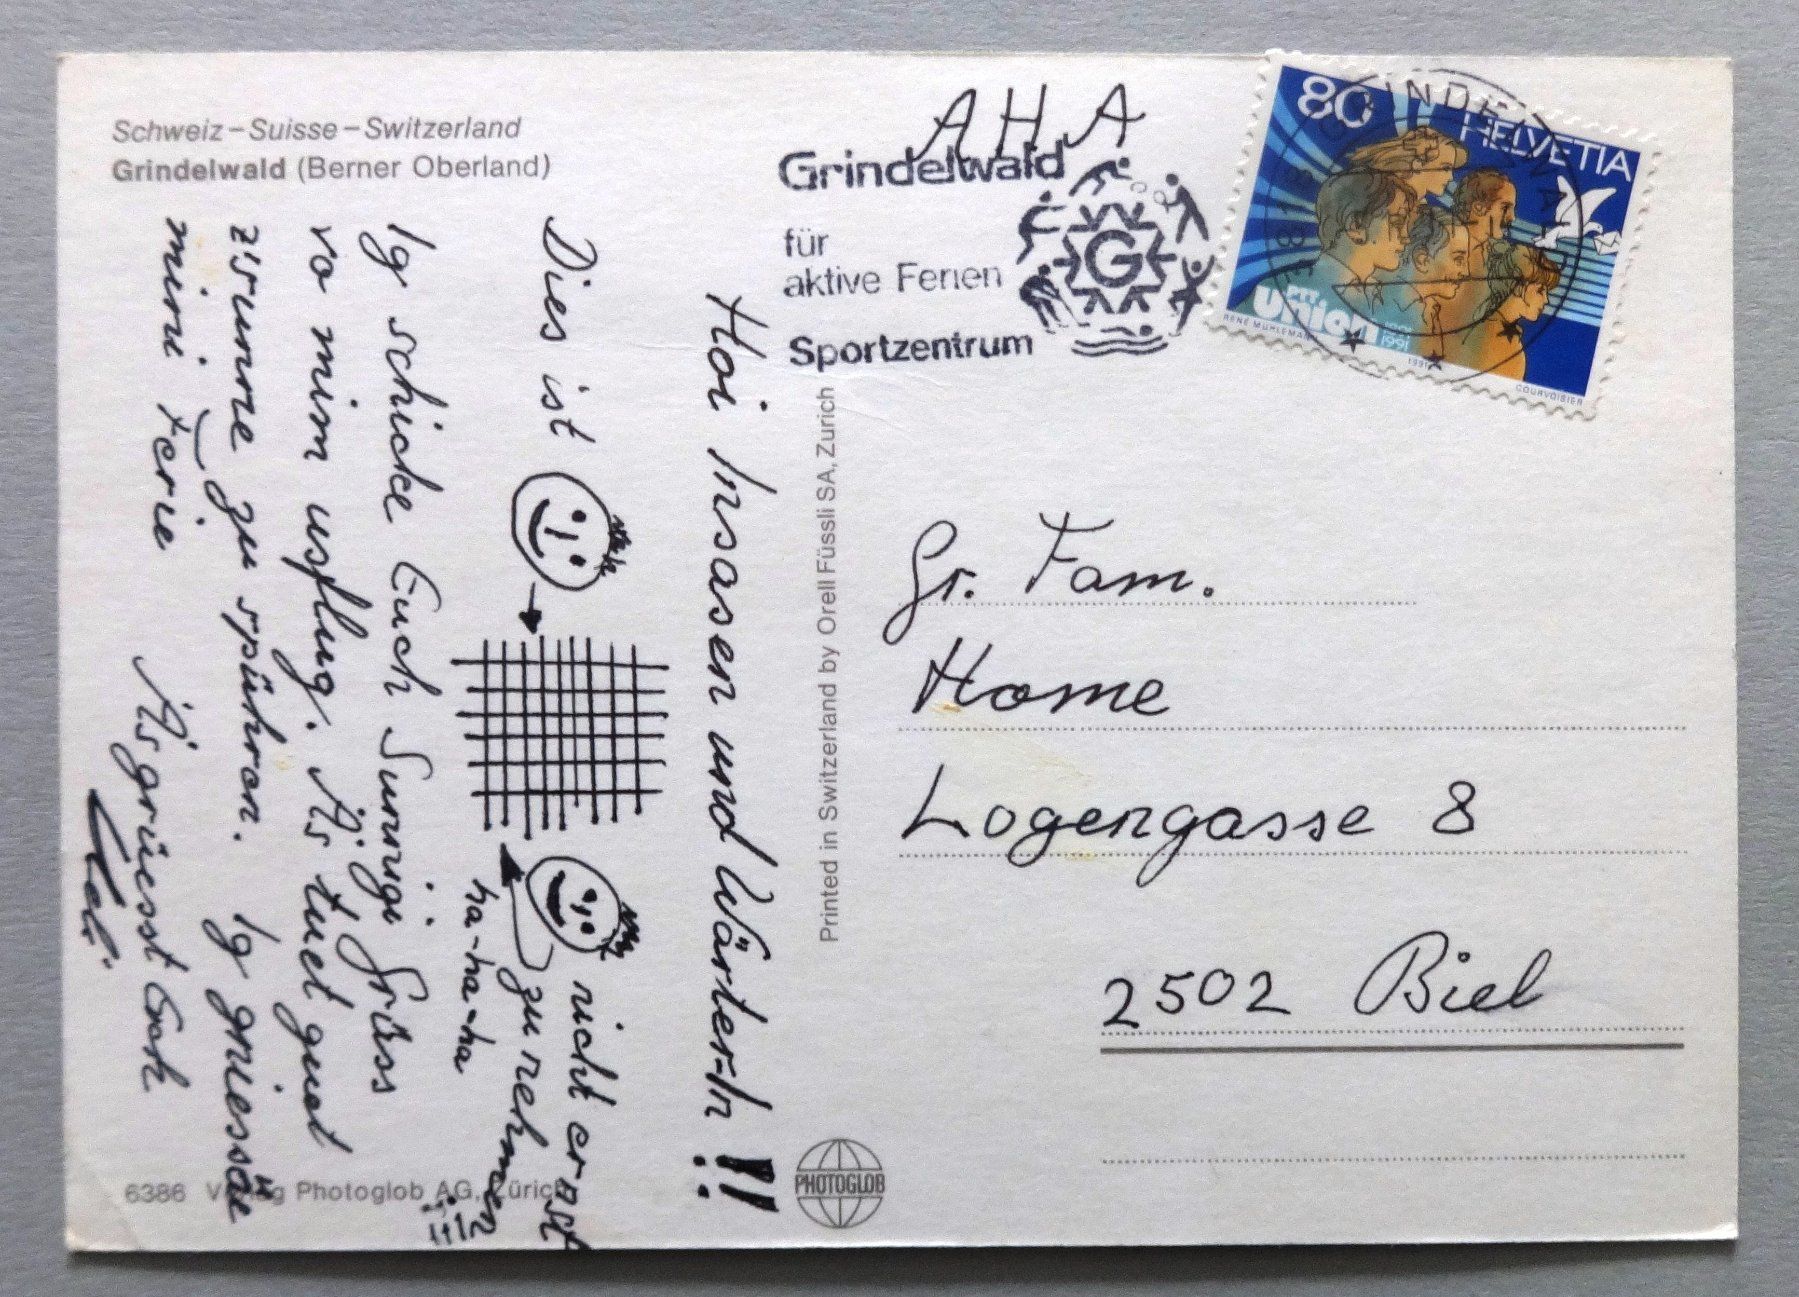 Schweiz – Suisse – Switzerland
Grindelwald (Berner Oberland)
Hoi Insassen und Wärter-In !!
Dies ist nicht ernst
zu nehmen
!!!!
ha-ha-ha
Ig schicke Euch Sunnigi Grüss
vo mim usflug. Äs tuet guet
z'sunne zu spühran. Ig griessä
mini Ferie
Äs grüesst Euch
6386 Verlag Photoglob AG, Zürich
Printed in Switzerland by Orell Füssli SA, Zurich
PHOTOGLOB
AHA
Grindelwald
für
aktive Ferien
Sportzentrum
G
GRINDELWALD
80
HELVETIA
PTT
Union
1891
1991
RENÉ MÜHLEMANN
1991
COURVOISIER
Gr. Fam.
Home
Logengasse 8
2502 Biel